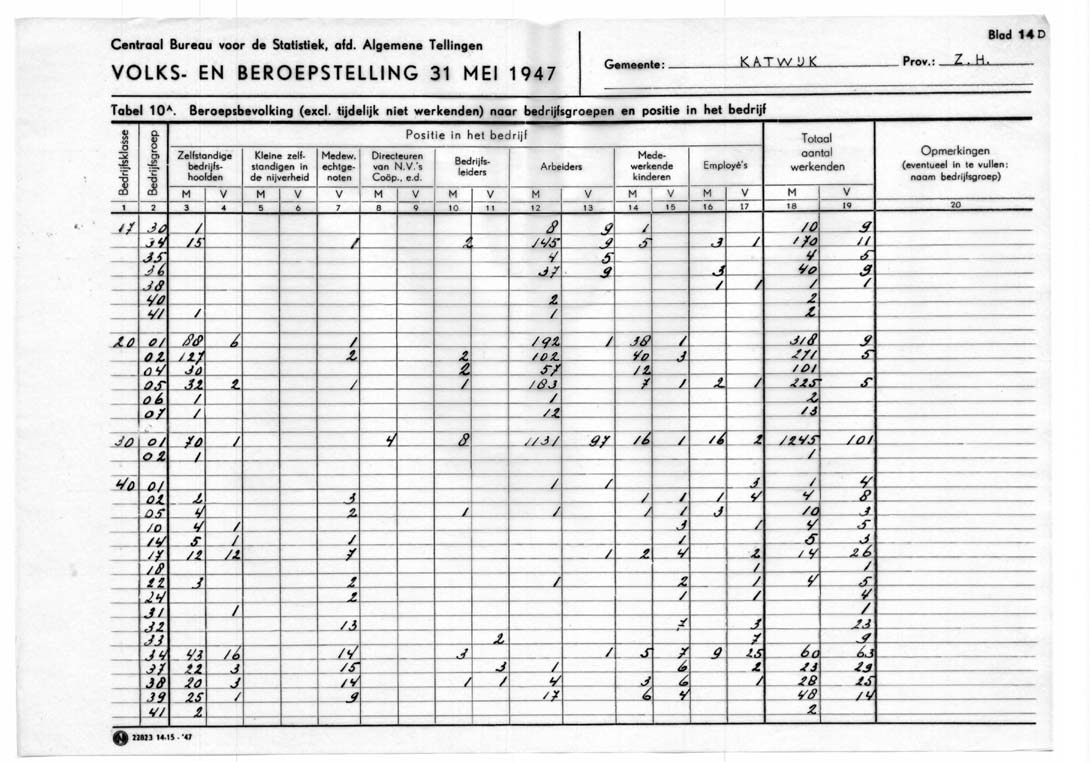 Centraal Bureau voor de Statistiek, afd. Algemene Tellingen
VOLKS- EN BEROEPSTELLING 31 MEI 1947
Gemeente: KATWIJK Prov.: Z.H.
Blad 14 D
Tabel 10A. Beroepsbevolking (excl. tijdelijk niet werkenden) naar bedrijfsgroepen en positie in het bedrijf
Bedrijfsklasse Bedrijfsgroep Positie in het bedrijf Totaal aantal werkenden Opmerkingen (eventueel in te vullen: naam bedrijfsgroep)
Zelfstandige bedrijfs-hoofden Kleine zelf-standigen in de nijverheid Medew. echtge-noten Directeuren van N.V.'s Coöp., e.d. Bedrijfs-leiders Arbeiders Mede-werkende kinderen Employé's
M V M V V M V M V M V M V M V M V
1 2 3 4 5 6 7 8 9 10 11 12 13 14 15 16 17 18 19 20
17 30 1 8 9 1 10 9
34 15 1 2 145 9 5 3 1 170 11
35 4 5 4 5
36 37 9 3 40 9
38 1 1 1 1
40 2 2
41 1 1 2
20 01 88 6 1 192 1 38 1 318 9
02 127 2 2 102 40 3 271 5
04 30 2 57 12 101
05 32 2 1 1 183 7 1 2 1 225 5
06 1 1 2
07 1 12 13
30 01 70 1 4 8 1131 97 16 1 16 2 1245 101
02 1 1
40 01 1 1 3 1 4
02 2 3 1 1 1 4 4 8
05 4 2 1 1 1 1 3 10 3
10 4 1 3 1 4 5
14 5 1 1 1 5 3
17 12 12 7 1 2 4 2 14 26
18 1 1
22 3 2 1 2 1 4 5
24 2 1 1 4
31 1 1
32 13 7 3 23
33 2 7 9
34 43 16 14 3 1 5 7 9 25 60 63
37 22 3 15 3 1 6 2 23 29
38 20 3 14 1 1 4 3 6 1 28 25
39 25 1 9 17 6 4 48 14
41 2 2
N 22823 14-15 - '47